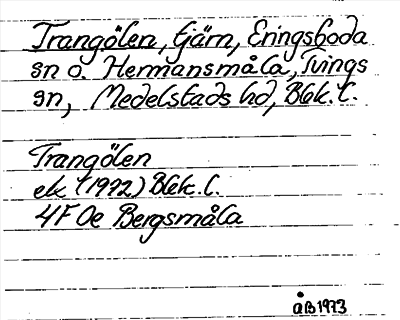 Trangölen, tjärn, Eringsboda
sn o. Hermansmåla, Tvings
sn, Medelstads hd, Blek. l.
Trangölen
ek (1972) Blek. l.
4F 0e Bergsmåla
ÅB 1973